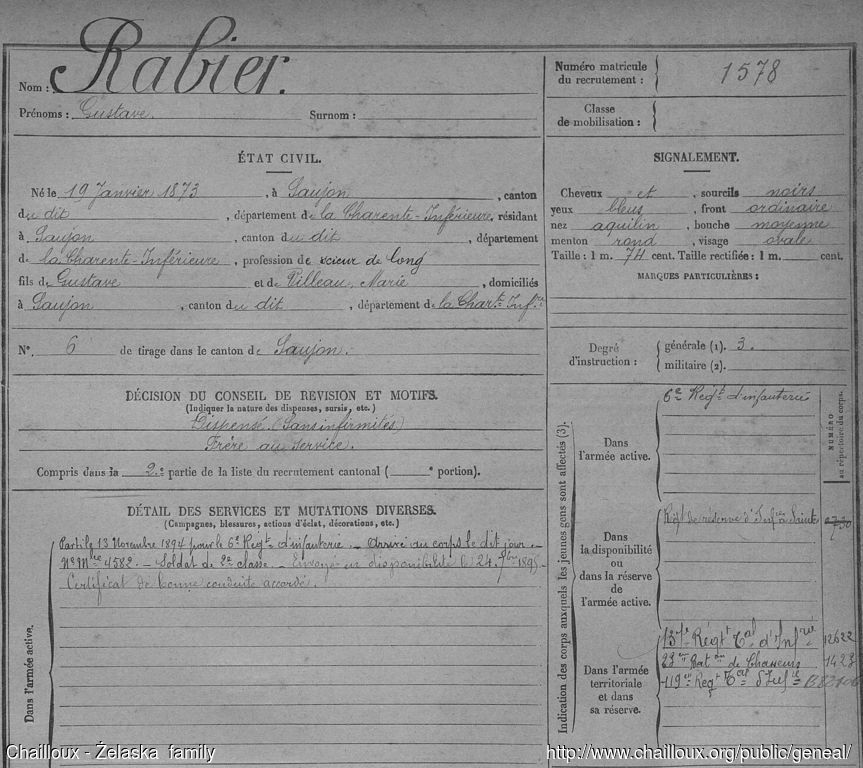 Nom : Rabier.
Prénoms : Gustave. Surnom :
Numéro matricule du recrutement : 1578
Classe de mobilisation :
ÉTAT CIVIL.
Né le 19 Janvier 1873, à Saujon, canton
du dit, département de la Charente-Inférieure, résidant
à Saujon, canton du dit, département
de la Charente-Inférieure, profession de scieur de long
fils de Gustave et de Pilleau, Marie, domiciliés
à Saujon, canton du dit, département de la Charte Infre
N° 6 de tirage dans le canton de Saujon.
SIGNALEMENT.
Cheveux et, sourcils noirs
yeux bleus, front ordinaire
nez aquilin, bouche moyenne
menton rond, visage ovale
Taille : 1 m. 74 cent. Taille rectifiée : 1 m. cent.
MARQUES PARTICULIÈRES :
Degré d'instruction : générale (1). 3.
militaire (2).
DÉCISION DU CONSEIL DE REVISION ET MOTIFS.
(Indiquer la nature des dispenses, sursis, etc.)
Dispensé. (Sans infirmités)
Frère au service.
Compris dans la 2e partie de la liste du recrutement cantonal ( e portion).
DÉTAIL DES SERVICES ET MUTATIONS DIVERSES.
(Campagnes, blessures, actions d'éclat, décorations, etc.)
Dans l'armée active.
Parti le 13 Novembre 1894 pour le 6e Regt d'infanterie. - Arrivé au corps le dit jour. -
No Mle 4582. - Soldat de 2e classe. - Envoyé en disponibilité le 24 7bre 1895.
Certificat de bonne conduite accordé.
Indication des corps auxquels les jeunes gens sont affectés (3).
NUMÉRO au répertoire du corps.
Dans l'armée active.
6e Regt d'infanterie
Dans la disponibilité ou dans la réserve de l'armée active.
Regt de réserve d'Infrie Saintes
Dans l'armée territoriale et dans sa réserve.
137e Régt Tal d'Infrie 12622
23e Bat on de Chasseurs 1423
119e Regt Tal d'Infie
Chailloux - Żelaska family
http://www.chailloux.org/public/geneal/